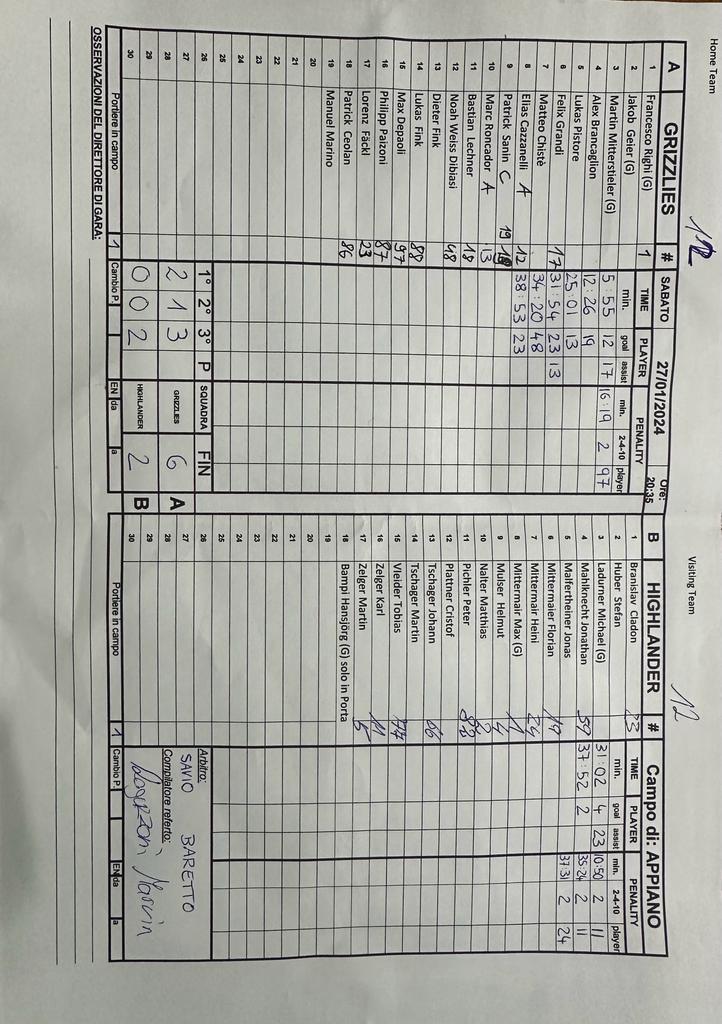 Home Team
12
Visiting Team
12
A GRIZZLIES # SABATO 27/01/2024 Ore: 20:35
TIME PLAYER PENALITY
min. goal assist min. 2-4-10 player
1 Francesco Righi (G) 1
2 Jakob Geier (G)
3 Martin Mitterstieler (G) 5:55 12 17 16:19 2 97
4 Alex Brancaglion 12:26 19
5 Lukas Pistore 25:01 13
6 Felix Grandi 17 31:54 23 13
7 Matteo Chistè 34:20 48
8 Elias Cazzanelli A 12 38:53 23
9 Patrick Sanin C 19
10 Marc Roncador A 13
11 Bastian Lechner 18
12 Noah Weiss Dibiasi 48
13 Dieter Fink
14 Lukas Fink 88
15 Max Depaoli 97
16 Philipp Paizoni 87
17 Lorenz Fäckl 23
18 Patrick Ceolan 86
19 Manuel Marino
20
21
22
23
24
25
26 1° 2° 3° P SQUADRA FIN
27
28 2 1 3 GRIZZLIES 6 A
29
30 0 0 2 HIGHLANDER 2 B
Portiere in campo 1 Cambio P. EN da a
OSSERVAZIONI DEL DIRETTORE DI GARA:
B HIGHLANDER # Campo di: APPIANO
TIME PLAYER PENALITY
min. goal assist min. 2-4-10 player
1 Branislav Cladon 23
2 Huber Stefan
3 Ladurner Michael (G) 31:02 4 23 10:50 2 11
4 Mahlknecht Jonathan 59 37:52 2 35:24 2 11
5 Malfertheiner Jonas 37:31 2 24
6 Mittermaier Florian 19
7 Mittermair Heini 24
8 Mittermair Max (G) 11
9 Mulser Helmut 4
10 Nalter Matthias 2
11 Pichler Peter 88
12 Plattner Cristof
13 Tschager Johann 66
14 Tschager Martin
15 Vieider Tobias 77
16 Zelger Karl 11
17 Zelger Martin 5
18 Bampi Hansjörg (G) solo in Porta
19
20
21
22
23
24
25
26 Arbitro:
27 SAVIO BARETTO
28 Compilatore referto:
29
30
Portiere in campo 1 Cambio P. EN da a